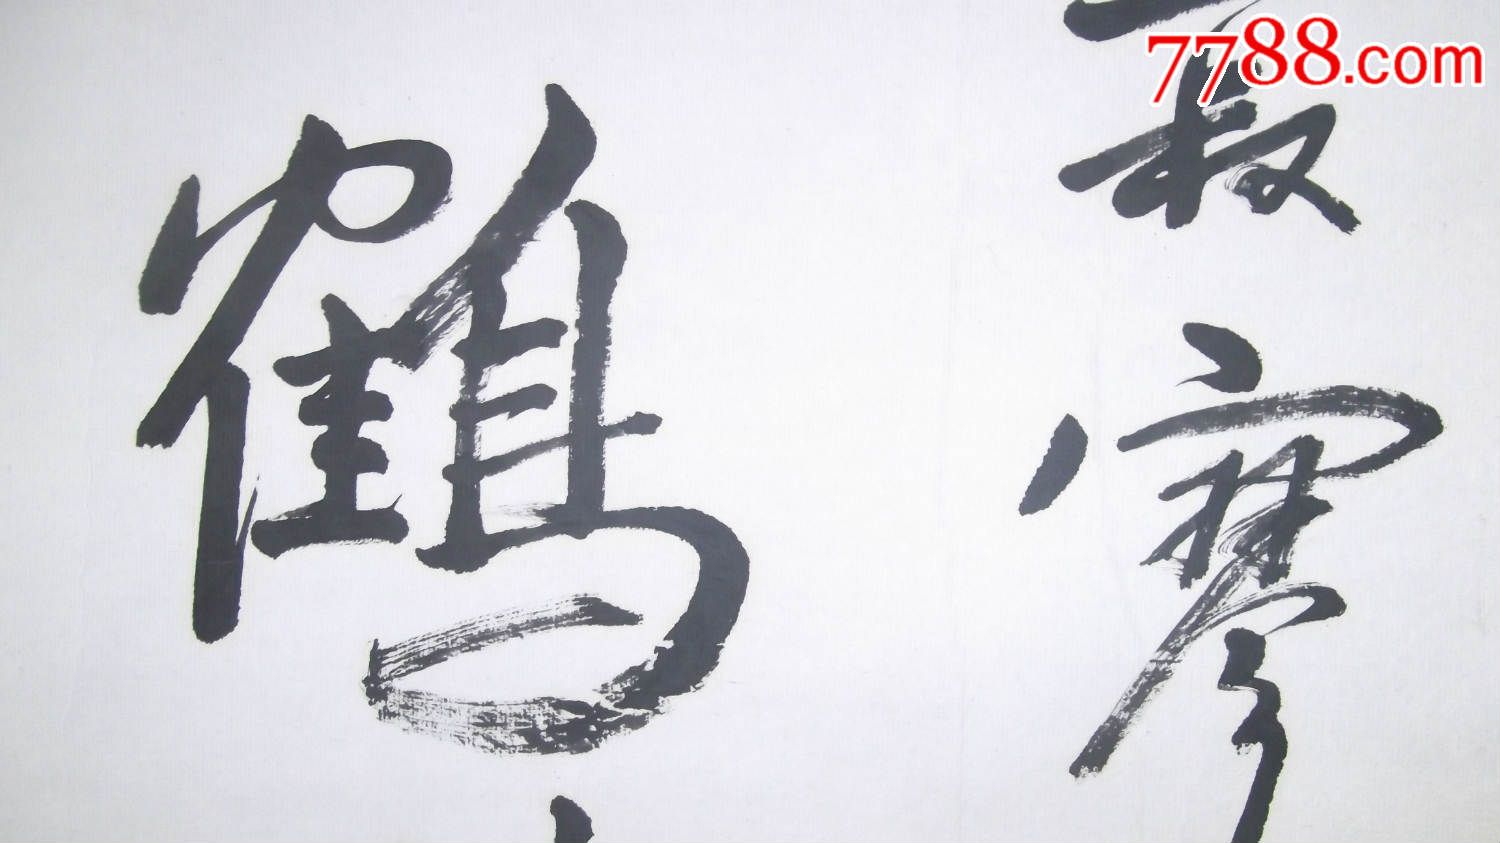 7788.com
寂寥
鶴